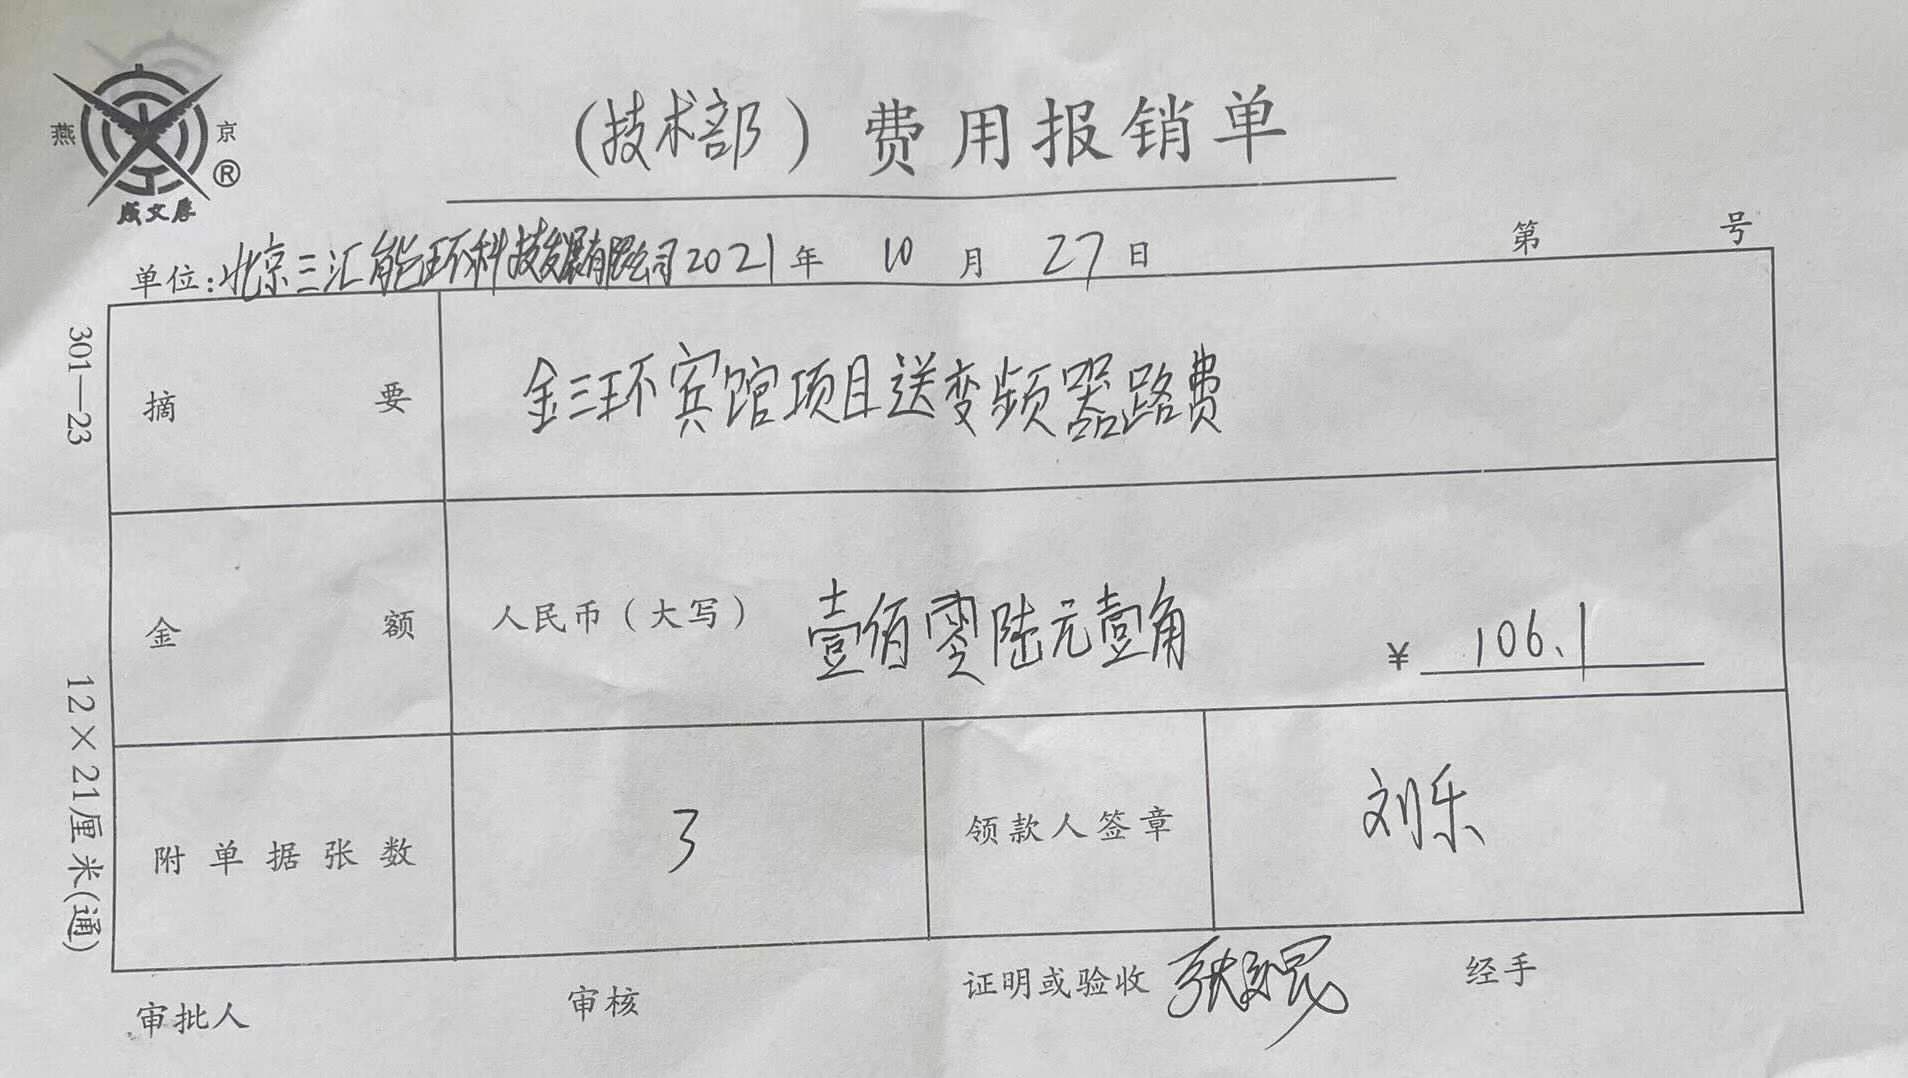 燕 京
®
成文厚
(技术部)费用报销单
单位:北京三汇能环科技发展有限公司2021年10月27日 第 号
301—23
12×21厘米(通)
摘要 金三环宾馆项目送变频器路费
金额 人民币(大写) 壹佰零陆元壹角 ¥ 106.1
附单据张数 3 领款人签章 刘乐
审批人 审核 证明或验收 张 经手